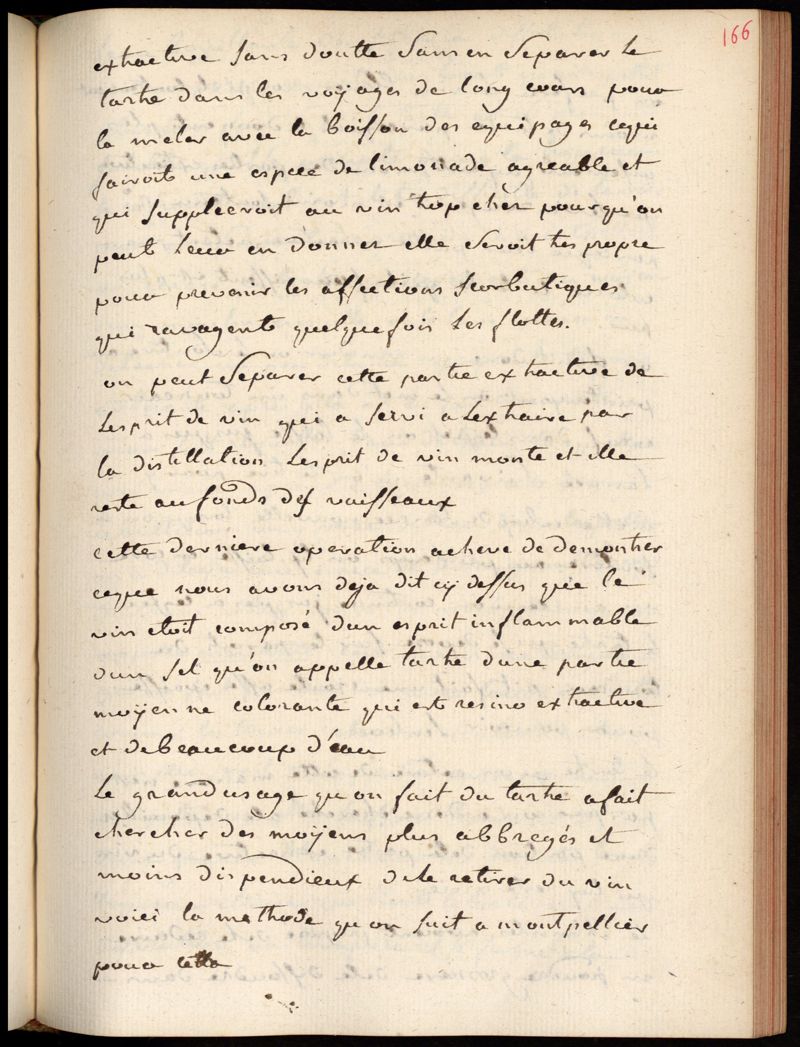 166
extractive sans doutte sans en separer le
tartre dans les voyages de long cours pour
la meler avec la boisson des equipages cequi
fairoit une espece de limonade agreable et
qui suppleeroit au vin trop cher pourqu'on
peut leur en donner elle seroit tres propre
pour prevenir les affections scorbutiques
qui ravagent quelquefois les flottes.
on peut separer cette partie extractive de
Lesprit de vin qui a servi a Lextraire par
la distillation Lesprit de vin monte et elle
reste au fonds des vaisseaux
cette derniere operation acheve de demontrer
ceque nous avons deja dit cy dessus que le
vin etoit composé dun esprit inflammable
dun sel qu'on appelle tartre dune partie
moÿenne colorante qui est resino extractive
et de beaucoup d'eau
Le grand usage qu'on fait du tartre a fait
chercher des moÿens plus abbregés et
moins dispendieux de le retirer du vin
voici la methode qu'on suit a montpellier
pour cella